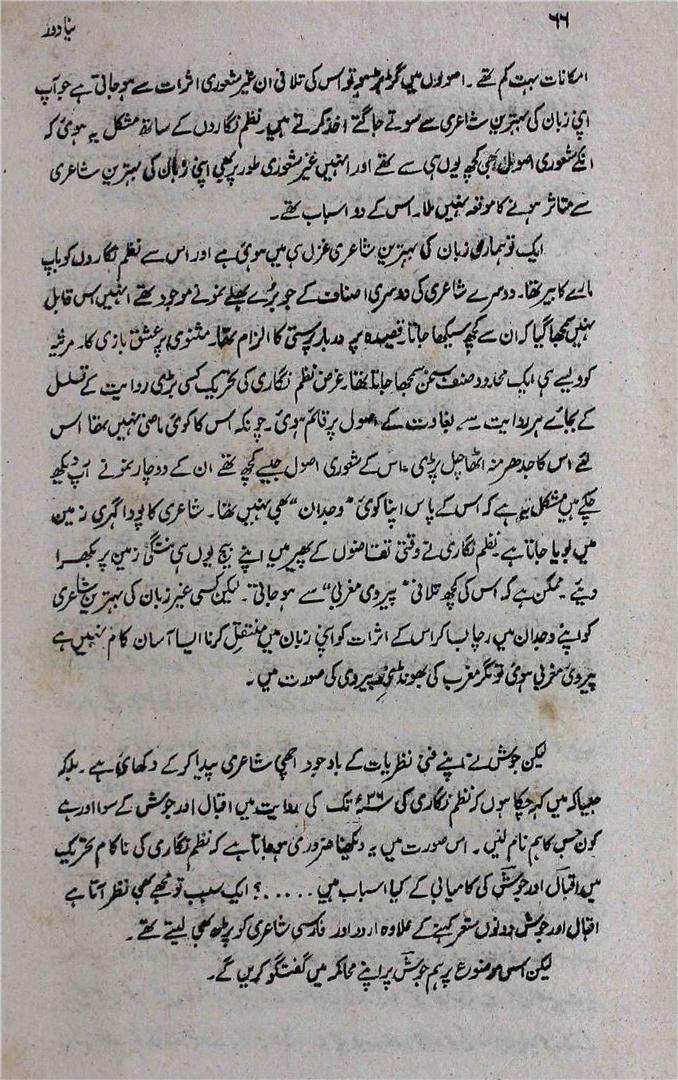 ۶۶
نیا دور
امکانات بہت کم تھے۔ اصولوں میں گڑبڑ ہو تو اس کی تلافی ان غیر شعوری اثرات سے ہو جاتی ہے جو آپ
اپنی زبان کی بہترین شاعری سے سوتے جاگتے اخذ کرتے ہیں۔ نظم نگاروں کے ساتھ مشکل یہ ہوئی کہ
انکے شعوری اصول بھی کچھ یوں ہی سے تھے اور انہیں غیر شعوری طور پر بھی اپنی زبان کی بہترین شاعری
سے متاثر ہونے کا موقعہ نہیں ملا۔ اس کے دو اسباب تھے۔
ایک تو ہماری زبان کی بہترین شاعری غزل ہی میں ہوئی ہے اور اس سے نظم نگاروں کو باپ
مارے کا بیر تھا۔ دوسرے شاعری کی دوسری اصناف کے جو برے بھلے نمونے موجود تھے انہیں اس قابل
نہیں سمجھا گیا کہ ان سے کچھ سیکھا جاتا۔ قصیدہ پر دربار پرستی کا الزام تھا۔ مثنوی پر عشق بازی کا۔ مرثیہ
کو ویسے ہی ایک محدود صنف سخن سمجھا جاتا تھا۔ غرض نظم نگاری کی تحریک کسی بڑی روایت کے تسلسل
کے بجائے ہر روایت سے بغاوت کے اصول پر قائم ہوئی۔ چونکہ اس کا کوئی ماضی نہیں تھا اس
لئے اس کا جدھر منہ اٹھا چل پڑی۔ اس کے شعوری اصول جیسے کچھ تھے ان کے دو چار نمونے آپ دیکھ
چکے ہیں مشکل یہ ہے کہ اس کے پاس اپنا کوئی "وجدان" بھی نہیں تھا۔ شاعری کا پودا گہری زمین
میں بویا جاتا ہے۔ نظم نگاری نے وقتی تقاضوں کے پھیر میں اپنے بیج یوں ہی ننگی زمین پر بکھرا
دیئے۔ ممکن ہے کہ اس کی کچھ تلافی "پیروی مغربی" سے ہو جاتی۔ لیکن کسی غیر زبان کی بہترین شاعری
کو اپنے وجدان میں رچا بسا کر اس کے اثرات کو اپنی زبان میں منتقل کرنا ایسا آسان کام نہیں ہے
پیروی مغربی ہوئی تو مگر مغرب کی بھونڈی پیروی کی صورت میں۔
لیکن جوش نے اپنے فنی نظریات کے باوجود اچھی شاعری پیدا کر کے دکھائی ہے۔ بلکہ
جیسا کہ میں کہہ چکا ہوں کہ نظم نگاری کی ۳۶ء تک کی روایت میں اقبال اور جوش کے سوا اور ہے
کون جس کا ہم نام لیں۔ اس صورت میں یہ دیکھنا ضروری ہو جاتا ہے کہ نظم نگاری کی ناکام تحریک
میں اقبال اور جوش کی کامیابی کے کیا اسباب ہیں.....؟ ایک سبب تو مجھے بھی نظر آتا ہے
اقبال اور جوش دونوں شعر کہنے کے علاوہ اردو اور فارسی شاعری کو پڑھ بھی لیتے تھے۔
لیکن اسی موضوع پر ہم جوش پر اپنے محاکمہ میں گفتگو کریں گے۔